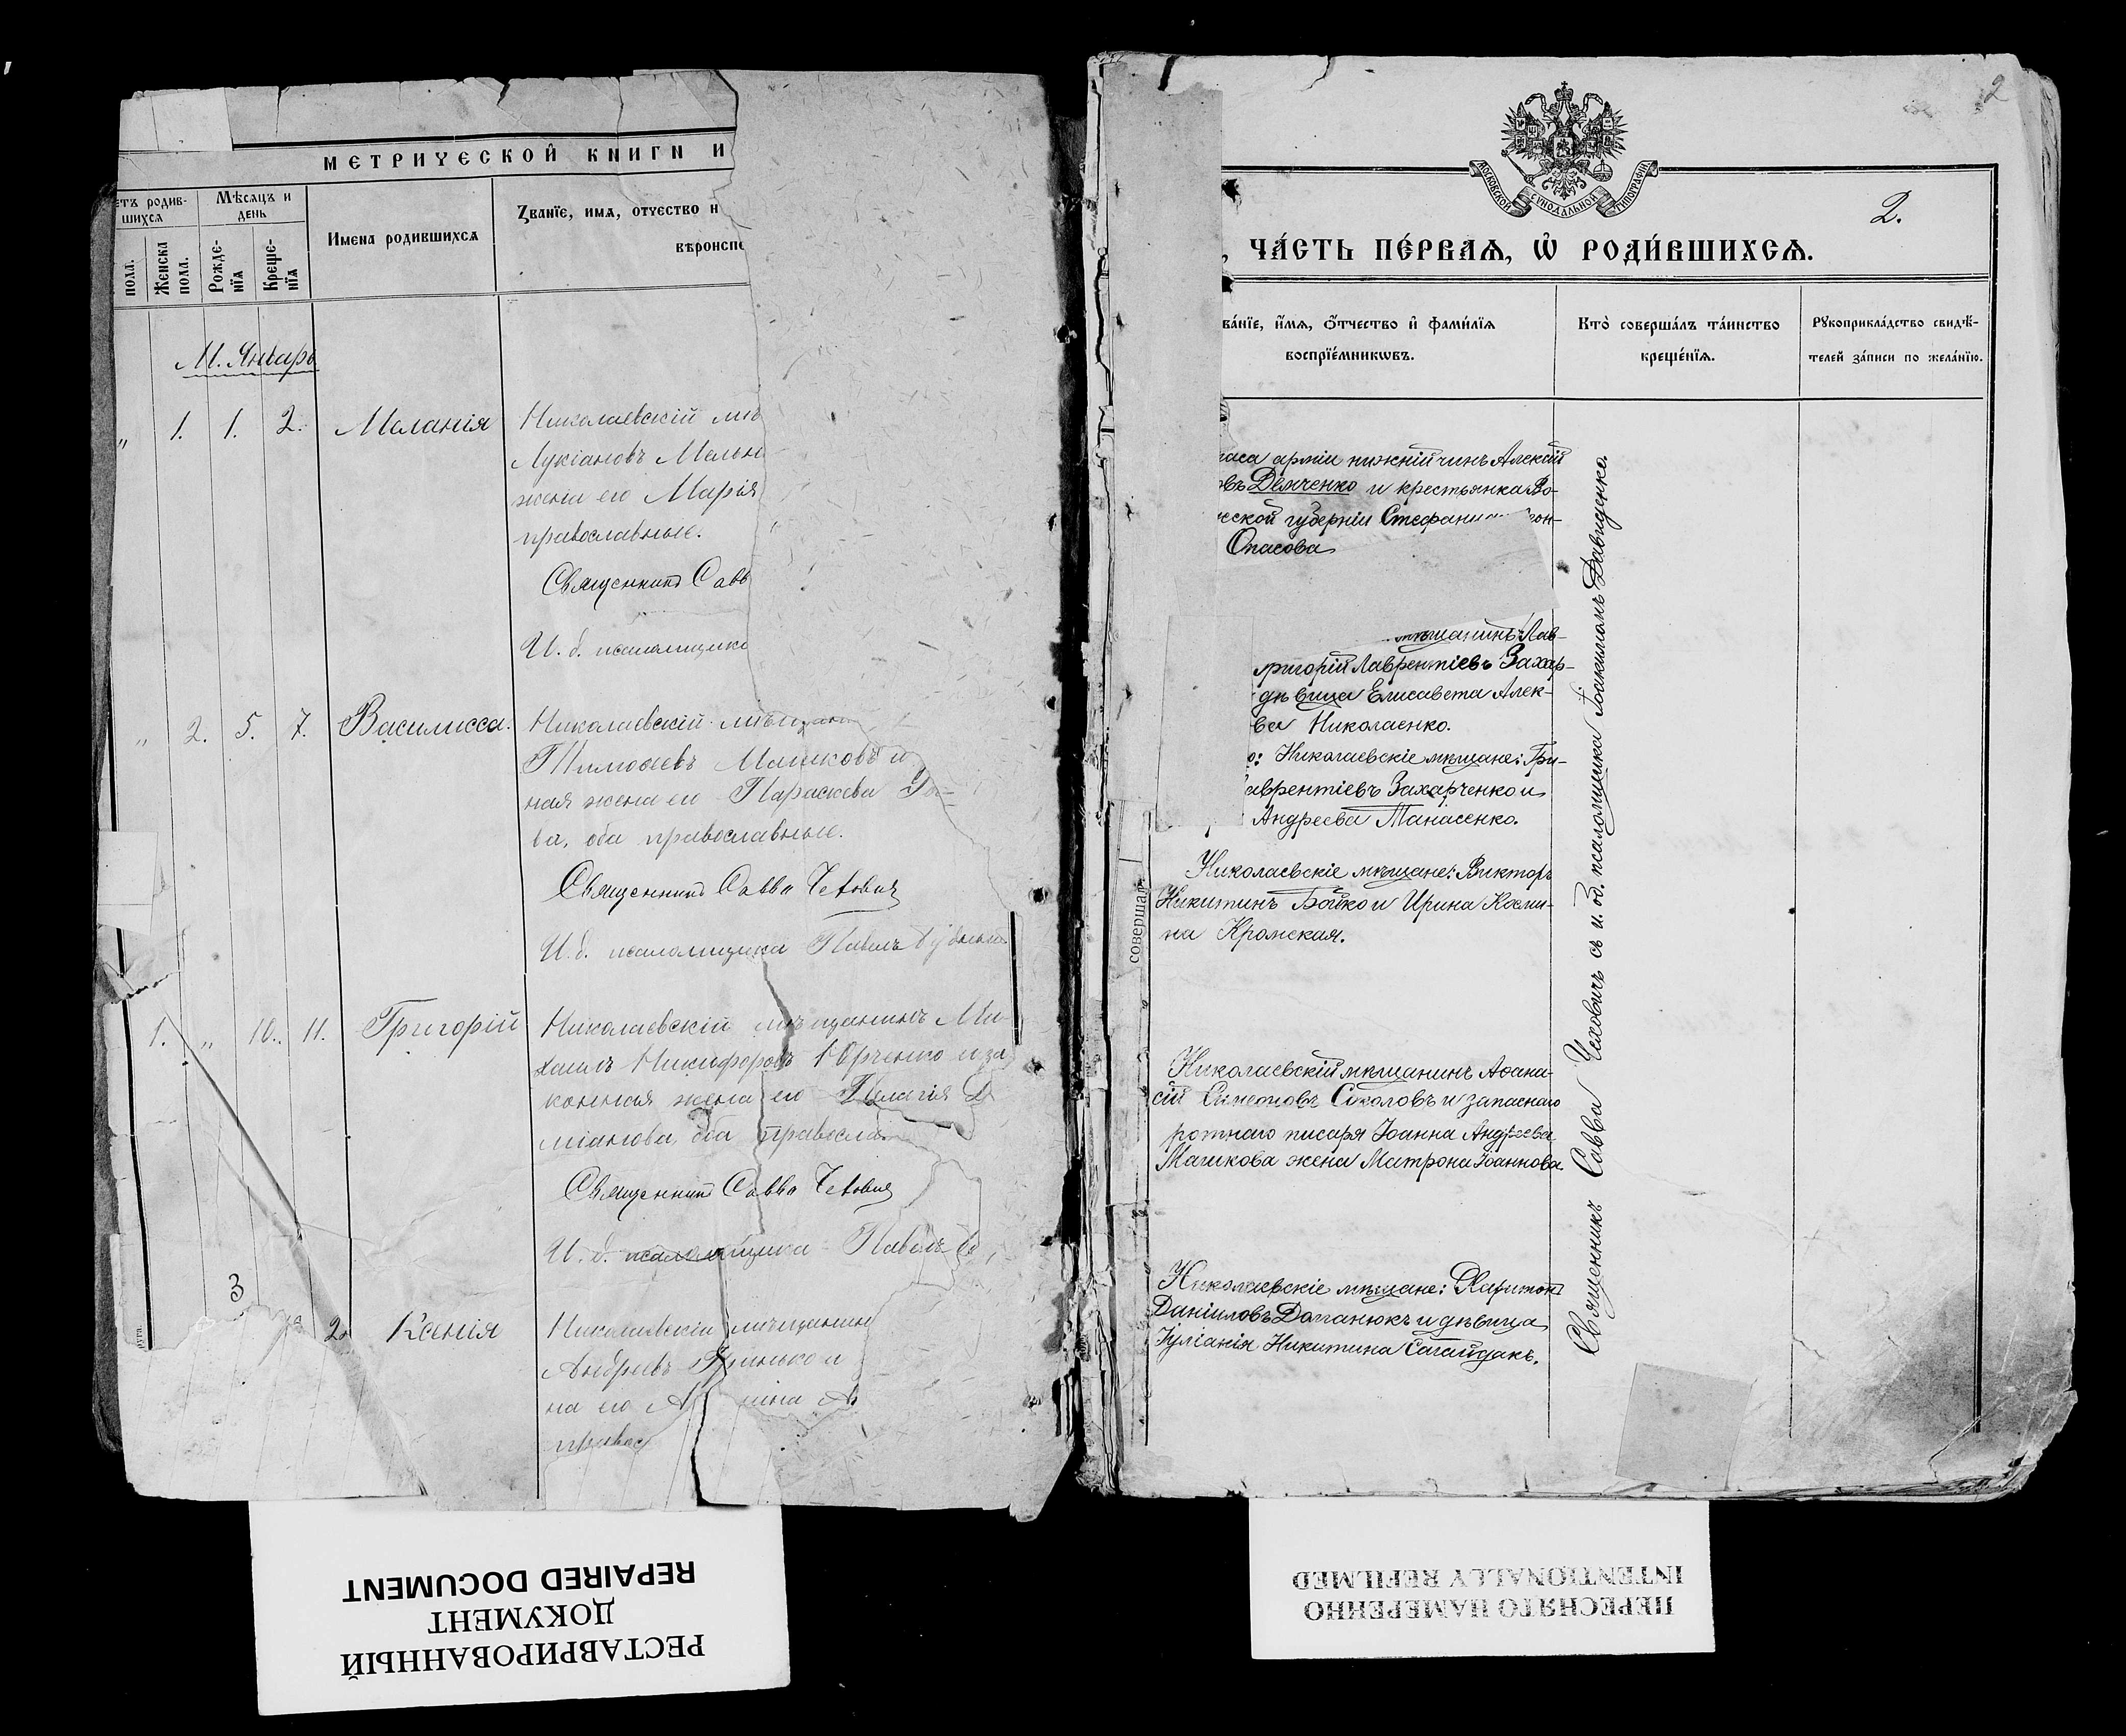 МЕТРИЧЕСКОЙ КНИГИ
родив-
шихся
Мѣсяцъ и
день
Имена родившихся
Званїе, имя, отчество
полл.
Женска
полл.
Рожде-
нїя
Креще-
нїя
М. Январь
" 1. 1. 2. Меланія
Николаевскій
Лукіановъ
жена его Марія
православные.
Священникъ
И. д. псаломщика
" 2. 5. 7. Василисса.
Николаевскій
Тимоѳеевъ Машковъ и
ная жена его Параскева
ва, оба православные.
Священникъ Савва Чехович
И. д. псаломщика Павелъ
1. " 10. 11. Григорій
Николаевскій мѣщанинъ Ми-
хаилъ Никифоровъ Юрченко и за
конная жена его Пелагія Д
міанова, оба
Священникъ Савва Чехович
И. д. псаломщика Павелъ
3
2. Ксенія
Николаевскій мѣщанин
Андреевъ Гринько и
на его
правос
2
МОСКОВСКОЙ СѴНОДАЛЬНОЙ ТИПОГРАФІИ
2.
, ЧА́СТЬ ПЕ́РВАЯ, Ѡ РОДИ́ВШИХСЯ.
ва́нїе, и́мя, о́тчество и фами́лїя
воспрїе́мникѡвъ.
Кто̀ соверша́лъ та́инство
креще́нїя.
Рукоприкла́дство свидѣ́-
телей за́писи по жела́нїю.
паса арміи нижній чинъ Алексій
овъ Демченко и крестьянка Во-
ской губерніи
Опасова
мѣщанинъ Лав-
ригорій Лаврентіевъ Захар-
дѣвица Елисавета Алек-
ва Николаенко.
о: Николаевскіе мѣщане: Гри-
аврентіевъ Захарченко и
Андреева Танасенко.
Николаевскіе мѣщане: Викторъ
Никитинъ Бойко и Ирина Косми-
на Кромская.
Николаевскій мѣщанинъ Аѳана-
сій Симеоновъ Соколовъ и запаснаго
ротнаго писаря Іоанна Андреева
Машкова жена Матрона Іоаннова.
Николаевскіе мѣщане: Харитонъ
Даніиловъ Доманюкъ и дѣвица
Іуліанія Никитина Сагайдакъ.
Священникъ Савва Чеховичъ съ и. об. псаломщика Іоакимомъ Давиденко.
совершал
РЕСТАВРИРОВАННЫЙ
ДОКУМЕНТ
REPAIRED DOCUMENT
ПЕРЕСНЯТО НАМЕРЕННО
INTENTIONALLY REFILMED